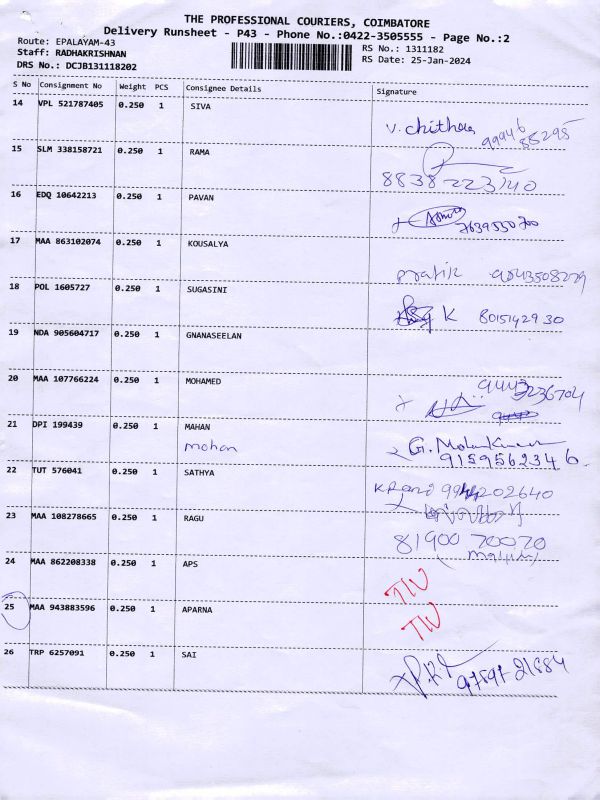 THE PROFESSIONAL COURIERS, COIMBATORE
Delivery Runsheet - P43 - Phone No.:0422-3505555 - Page No.:2
Route: EPALAYAM-43
RS No.: 1311182
Staff: RADHAKRISHNAN
RS Date: 25-Jan-2024
DRS No.: DCJB131118202
S No Consignment No Weight PCS Consignee Details Signature
14 VPL 521787405 0.250 1 SIVA
V. Chithra 99946 85295
15 SLM 338158721 0.250 1 RAMA
8838 223740
16 EDQ 10642213 0.250 1 PAVAN
7639550700
17 MAA 863102074 0.250 1 KOUSALYA
pratik 9043508279
18 POL 1605727 0.250 1 SUGASINI
K 8015142930
19 NDA 905604717 0.250 1 GNANASEELAN
20 MAA 107766224 0.250 1 MOHAMED
9443236704
21 DPI 199439 0.250 1 MAHAN
mohan G.
9159562346
22 TUT 576041 0.250 1 SATHYA
202640
23 MAA 108278665 0.250 1 RAGU
81900 70070
24 MAA 862208338 0.250 1 APS
25 MAA 943883596 0.250 1 APARNA
26 TRP 6257091 0.250 1 SAI